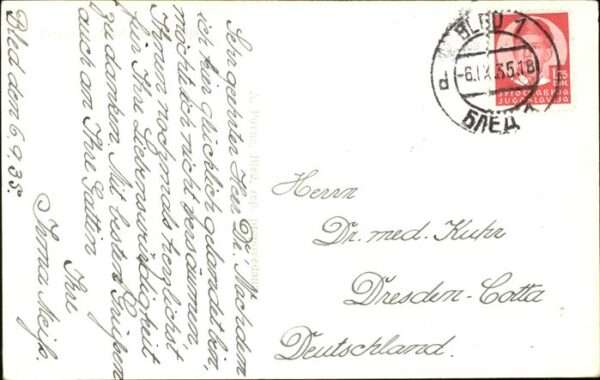 Bled den 6.9.35.
Sehr geehrter Herr Dr! Nachdem
ich hier glücklich gelandet bin,
möchte ich nicht versäumen
Ihnen nochmals herzlichst
für Ihre Liebenswürdigkeit
zu danken. Mit besten Grüßen
auch an Ihre Gattin
Ihre
Irma
Herrn
Dr. med. Kuhr
Dresden-Cotta
Deutschland.
BLED 1
-6.IX.35.18
БЛЕД
ЈУГОСЛАВИЈА
JUGOSLAVIJA